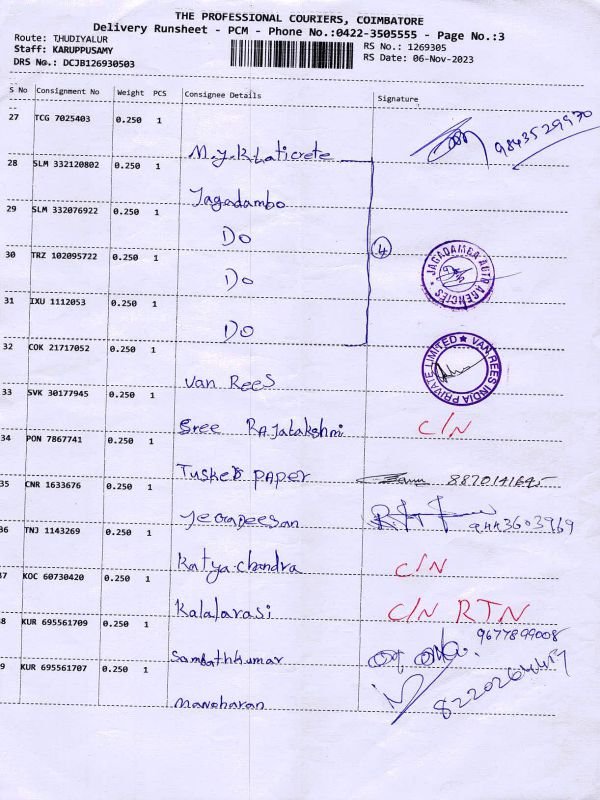 THE PROFESSIONAL COURIERS, COIMBATORE
Delivery Runsheet - PCM - Phone No.:0422-3505555 - Page No.:3
Route: THUDIYALUR
RS No.: 1269305
Staff: KARUPPUSAMY
RS Date: 06-Nov-2023
DRS No.: DCJB126930503
S No Consignment No Weight PCS Consignee Details Signature
27 TCG 7025403 0.250 1
9843529930
M.y.k Laticrete
28 SLM 332120802 0.250 1
Jagadambo
29 SLM 332076922 0.250 1
Do
4
30 TRZ 102095722 0.250 1
JAGADAMBA AUTO AGENCIES
Do
31 IXU 1112053 0.250 1
Do
32 COK 21717052 0.250 1
VAN REES INDIA PRIVATE LIMITED
Van Rees
33 SVK 30177945 0.250 1
Sree Rajalakshmi C/N
34 PON 7867741 0.250 1
Tusker PAPER 8870141645
35 CNR 1633676 0.250 1
9443603969
36 TNJ 1143269 0.250 1
Katya.chandra C/N
37 KOC 60730420 0.250 1
Kalalarasi C/N RTN
8 KUR 695561709 0.250 1
9677899008
Sambathkumar
9 KUR 695561707 0.250 1
Manoharan